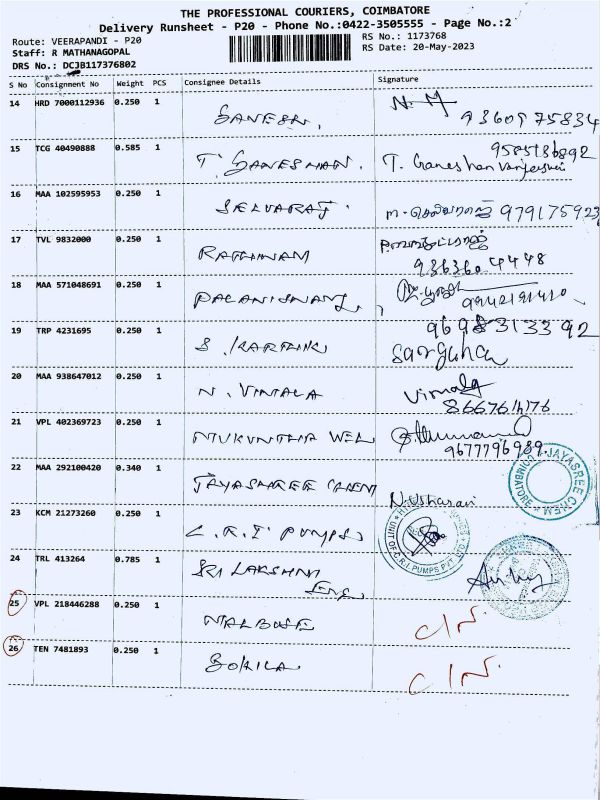 THE PROFESSIONAL COURIERS, COIMBATORE
Delivery Runsheet - P20 - Phone No.:0422-3505555 - Page No.:2
Route: VEERAPANDI - P20
RS No.: 1173768
Staff: R MATHANAGOPAL
RS Date: 20-May-2023
DRS No.: DCJB117376802
S No Consignment No Weight PCS Consignee Details Signature
14 HRD 7000112936 0.250 1 GANESN. N. M
9360975834
15 TCG 40490888 0.585 1 T. GANESHAN. T. Ganeshan
9585136892
16 MAA 102595953 0.250 1 SELVARAJ. 979175923
17 TVL 9832000 0.250 1 RATHINAM
9363604448
18 MAA 571048691 0.250 1 PALANISWAMY,
19 TRP 4231695 0.250 1 S. KARTHIK
9698313392
20 MAA 938647012 0.250 1 N. VIMALA Vimala
21 VPL 402369723 0.250 1 MUKUNTHA WEL
9677796989
22 MAA 292100420 0.340 1 JAYASHREE CHEM N. Usharani
JAYASREE CHEM COIMBATORE
23 KCM 21273260 0.250 1 C.R.I PUMPS
UNIT OF C.R.I. PUMPS PVT LTD
24 TRL 413264 0.785 1 SRI LAKSHMI
ENG
25 VPL 218446288 0.250 1 C/N.
26 TEN 7481893 0.250 1 C/N.